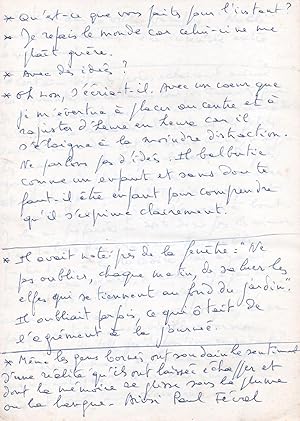 * Qu'est-ce que vous faites pour l'instant ?
* Je refais le monde car celui-ci ne me
plaît guère.
* Avec des idées ?
* Oh non, s'écria-t-il. Avec un coeur que
je m'évertue à placer au centre et à
rajuster d'heure en heure car il
s'éloigne à la moindre distraction.
Ne parlons pas d'idées. Il balbutie
comme un enfant et sans doute
faut-il être enfant pour comprendre
qu'il s'exprime clairement.
* Il avait noté près de la fenêtre : "Ne
pas oublier, chaque matin, de saluer les
elfes qui se tiennent au fond du jardin".
Il oubliait parfois, ce qui ôtait de
l'agrément à la journée.
* Même les gens bornés ont soudain le sentiment
d'une réalité qu'ils ont laissée échapper et
dont la mémoire se glisse sous la plume
ou la langue. Ainsi Paul Féval